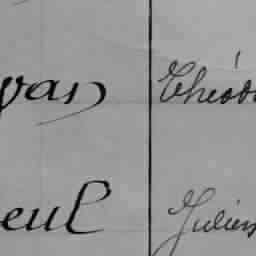 van Théodo
eul Julien